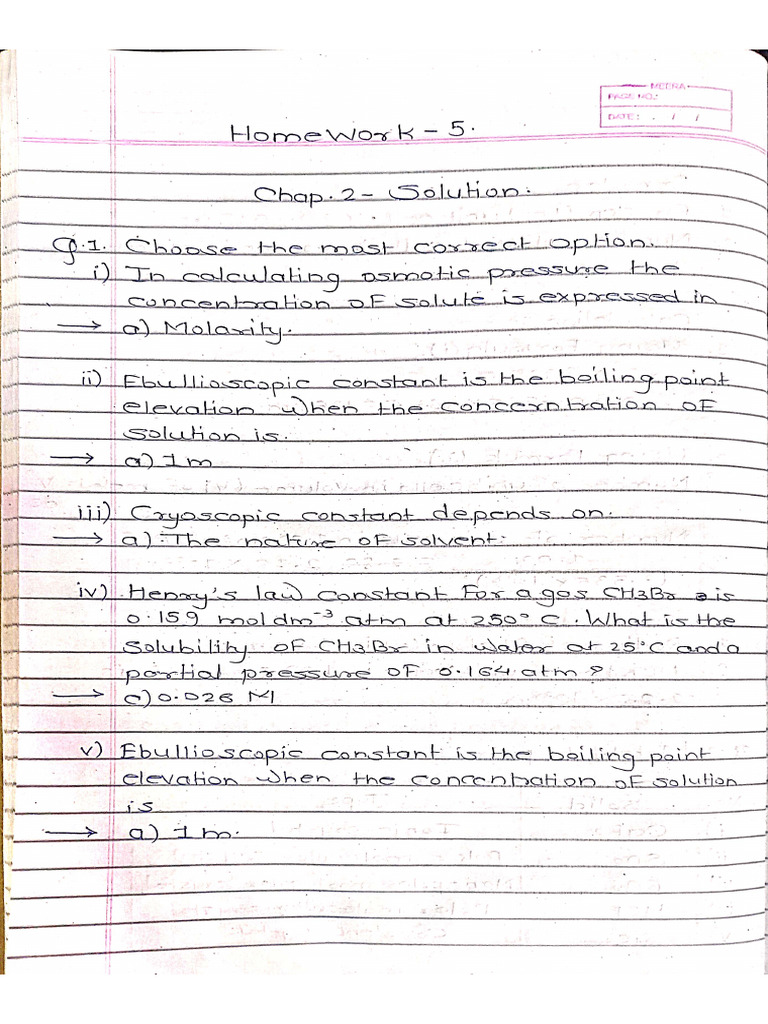 MEERA
PAGE NO.:
DATE: / /
HomeWork - 5.
Chap. 2 - Solution.
Q.1. Choose the most correct option.
i) In calculating osmotic pressure the
concentration of solute is expressed in
→ a) Molarity.
ii) Ebullioscopic constant is the boiling point
elevation when the concerntration of
solution is.
→ a) 1m
iii) Cryoscopic constant depends on.
→ a) The nature of solvent.
iv) Henry's law constant for a gas CH3Br is
0.159 mol dm⁻³ atm at 250° C. What is the
solubility of CH3Br in water at 25°C and a
partial pressure of 0.164 atm ?
→ c) 0.026 M
v) Ebullioscopic constant is the boiling point
elevation when the concentration of solution
is
→ a) 1m.